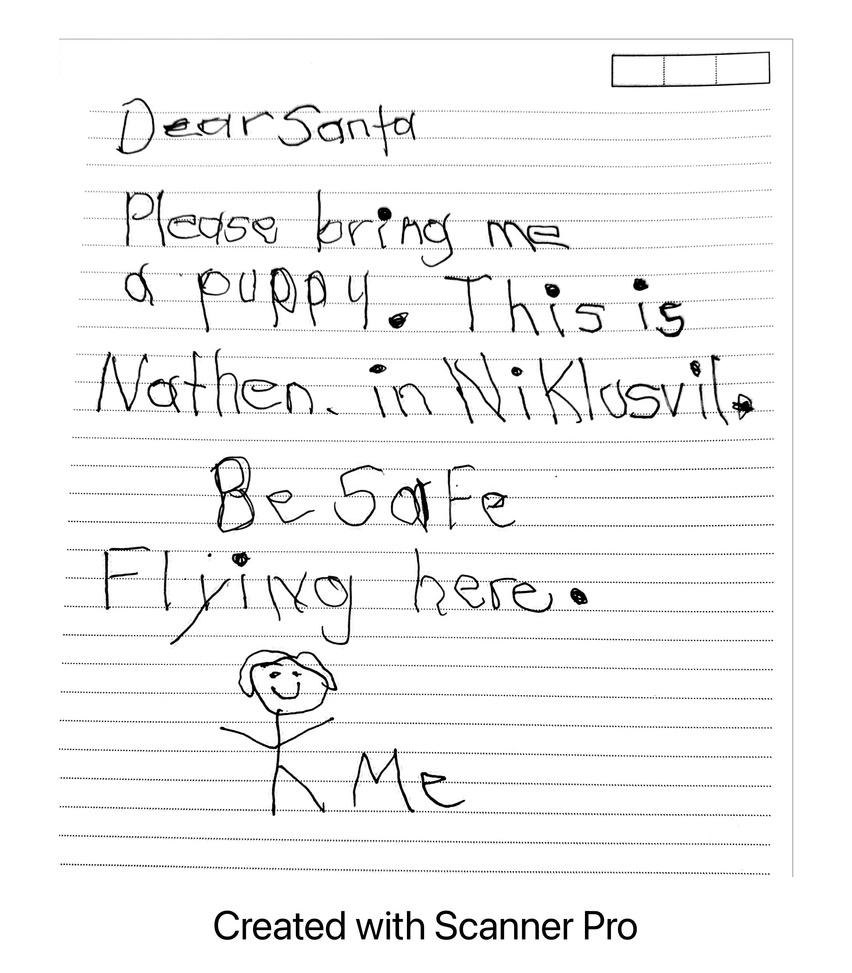 Dear Santa
Please bring me
a puppy. This is
Nathen. in Niklusvil.
Be SaFe
Flying here.
Me
Created with Scanner Pro